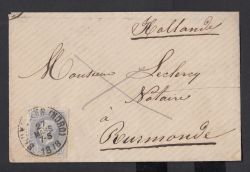 Hollande
Monsieur Leclercq
Notaire
à
Ruremonde
(NORD)
27
1878